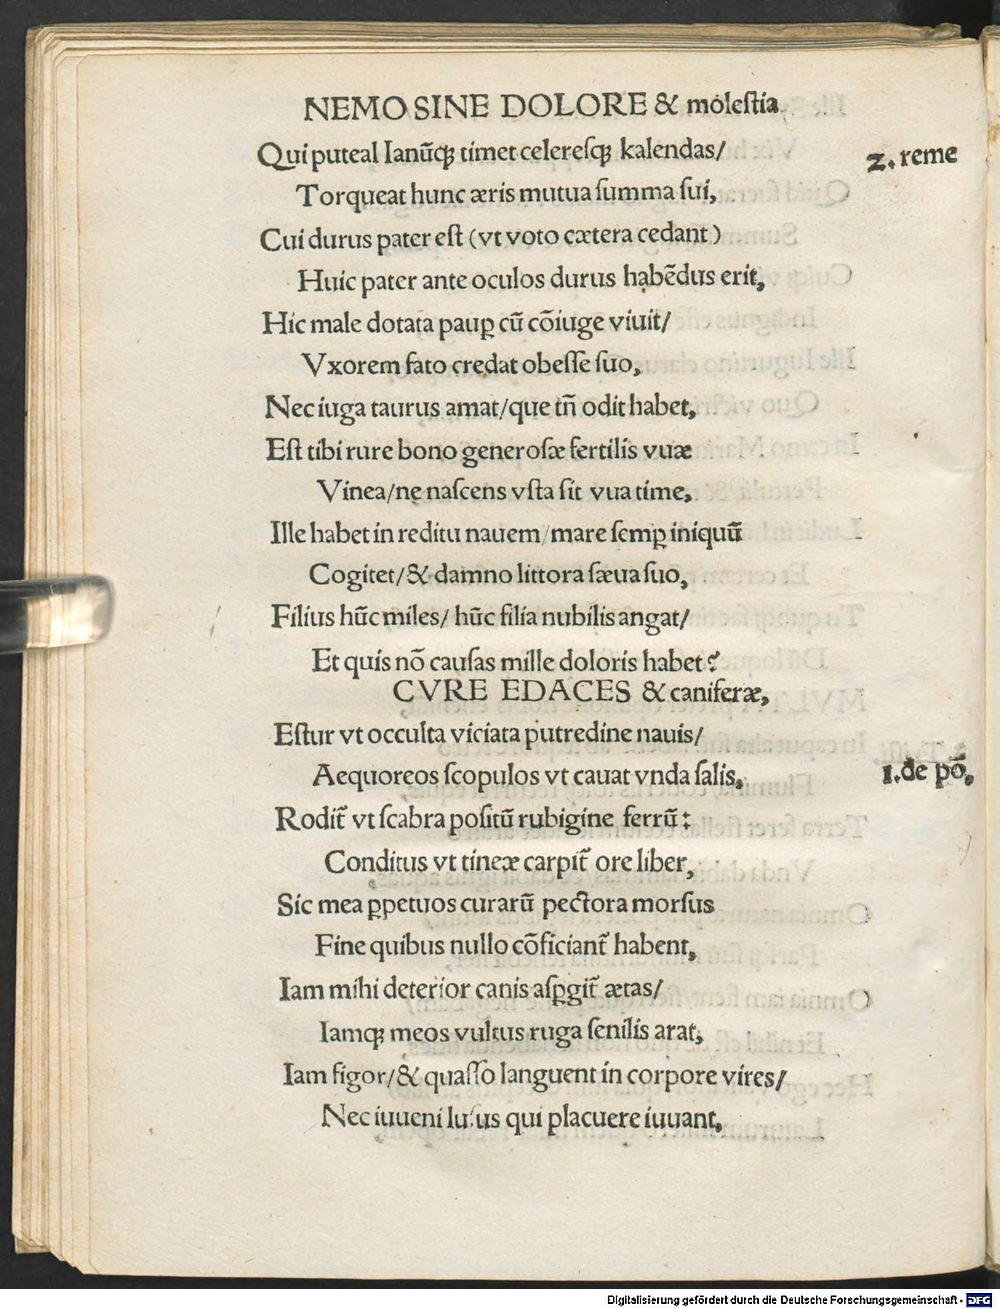 NEMO SINE DOLORE & moleſtia
Qui puteal Ianūqꝫ timet celereſqꝫ kalendas/
2. reme
Torqueat hunc æris mutua ſumma ſui,
Cui durus pater eſt (vt voto cætera cedant)
Huic pater ante oculos durus habēdus erit,
Hic male dotata pauꝑ cū cōiuge viuit/
Vxorem fato credat obeſſe ſuo,
Nec iuga taurus amat/que tñ odit habet,
Eſt tibi rure bono generoſæ fertilis vuæ
Vinea/ne naſcens vſta ſit vua time,
Ille habet in reditu nauem/mare ſemꝑ iniquū
Cogitet/& damno littora ſæua ſuo,
Filius hūc miles/ hūc filia nubilis angat/
Et quis nō cauſas mille doloris habet?
CVRE EDACES & caniferæ,
Eſtur vt occulta viciata putredine nauis/
Aequoreos ſcopulos vt cauat vnda ſalis,
1. de pō,
Rodit᷑ vt ſcabra poſitū rubigine ferrū:
Conditus vt tineæ carpit᷑ ore liber,
Sic mea ꝑpetuos curarū pectora morſus
Fine quibus nullo cōficiant᷑ habent,
Iam mihi deterior canis aſꝑgit᷑ ætas/
Iamqꝫ meos vultus ruga ſenilis arat,
Iam figor/& quaſſo languent in corpore vires/
Nec iuueni luſus qui placuere iuuant,
Digitalisierung gefördert durch die Deutsche Forschungsgemeinschaft - DFG